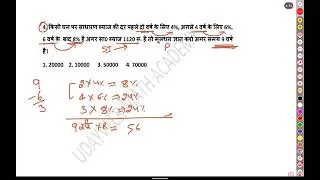 4. किसी धन पर साधारण ब्याज की दर पहले दो वर्ष के 4%, अगले 4 वर्ष के लिए 6%,
6 वर्ष के बाद 8% है अगर सा० ब्याज 1120 रु. है तो मूलधन ज्ञात करो अगर समय 9 वर्ष
है।
SI P
1. 20000 2. 10000 3. 50000 4. 70000
9
-6
3
2 × 4% = 8%
4 × 6% ⇒ 24%
3 × 8% ⇒ 24%
= 56